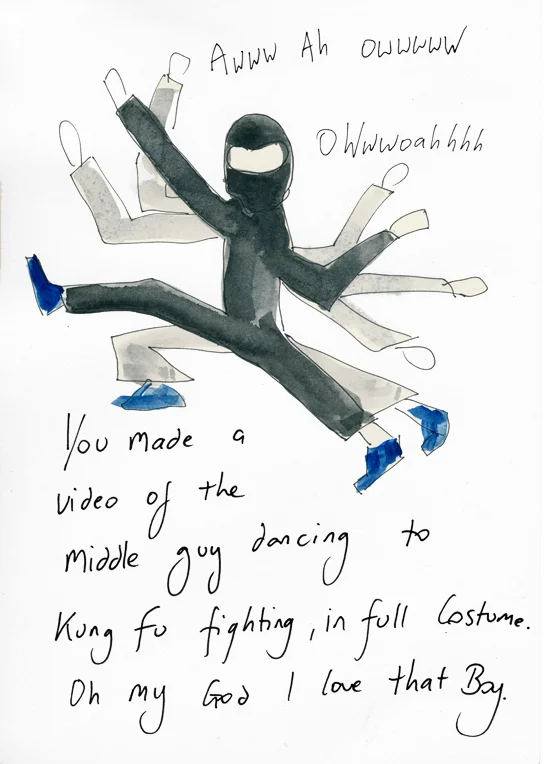 Awww Ah owwwww
OWwwoahhhh
You made a
video of the
middle guy dancing to
Kung fu fighting, in full Costume.
Oh my God I love that Boy.